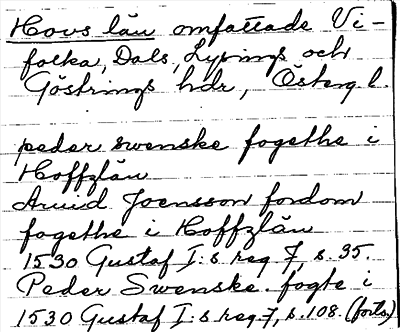 Hovs län omfattade Vi-
folka, Dals, Lysings och
Göstrings hdr, Österg l.
peder swenske fogethe i
Hoffzlän
Arvid Joensson fordom
fogethe i Hoffzlän
1530 Gustaf I:s reg 7, s. 35.
Peder Swenske fogte i
1530 Gustaf I:s reg 7, s. 108. (forts.)